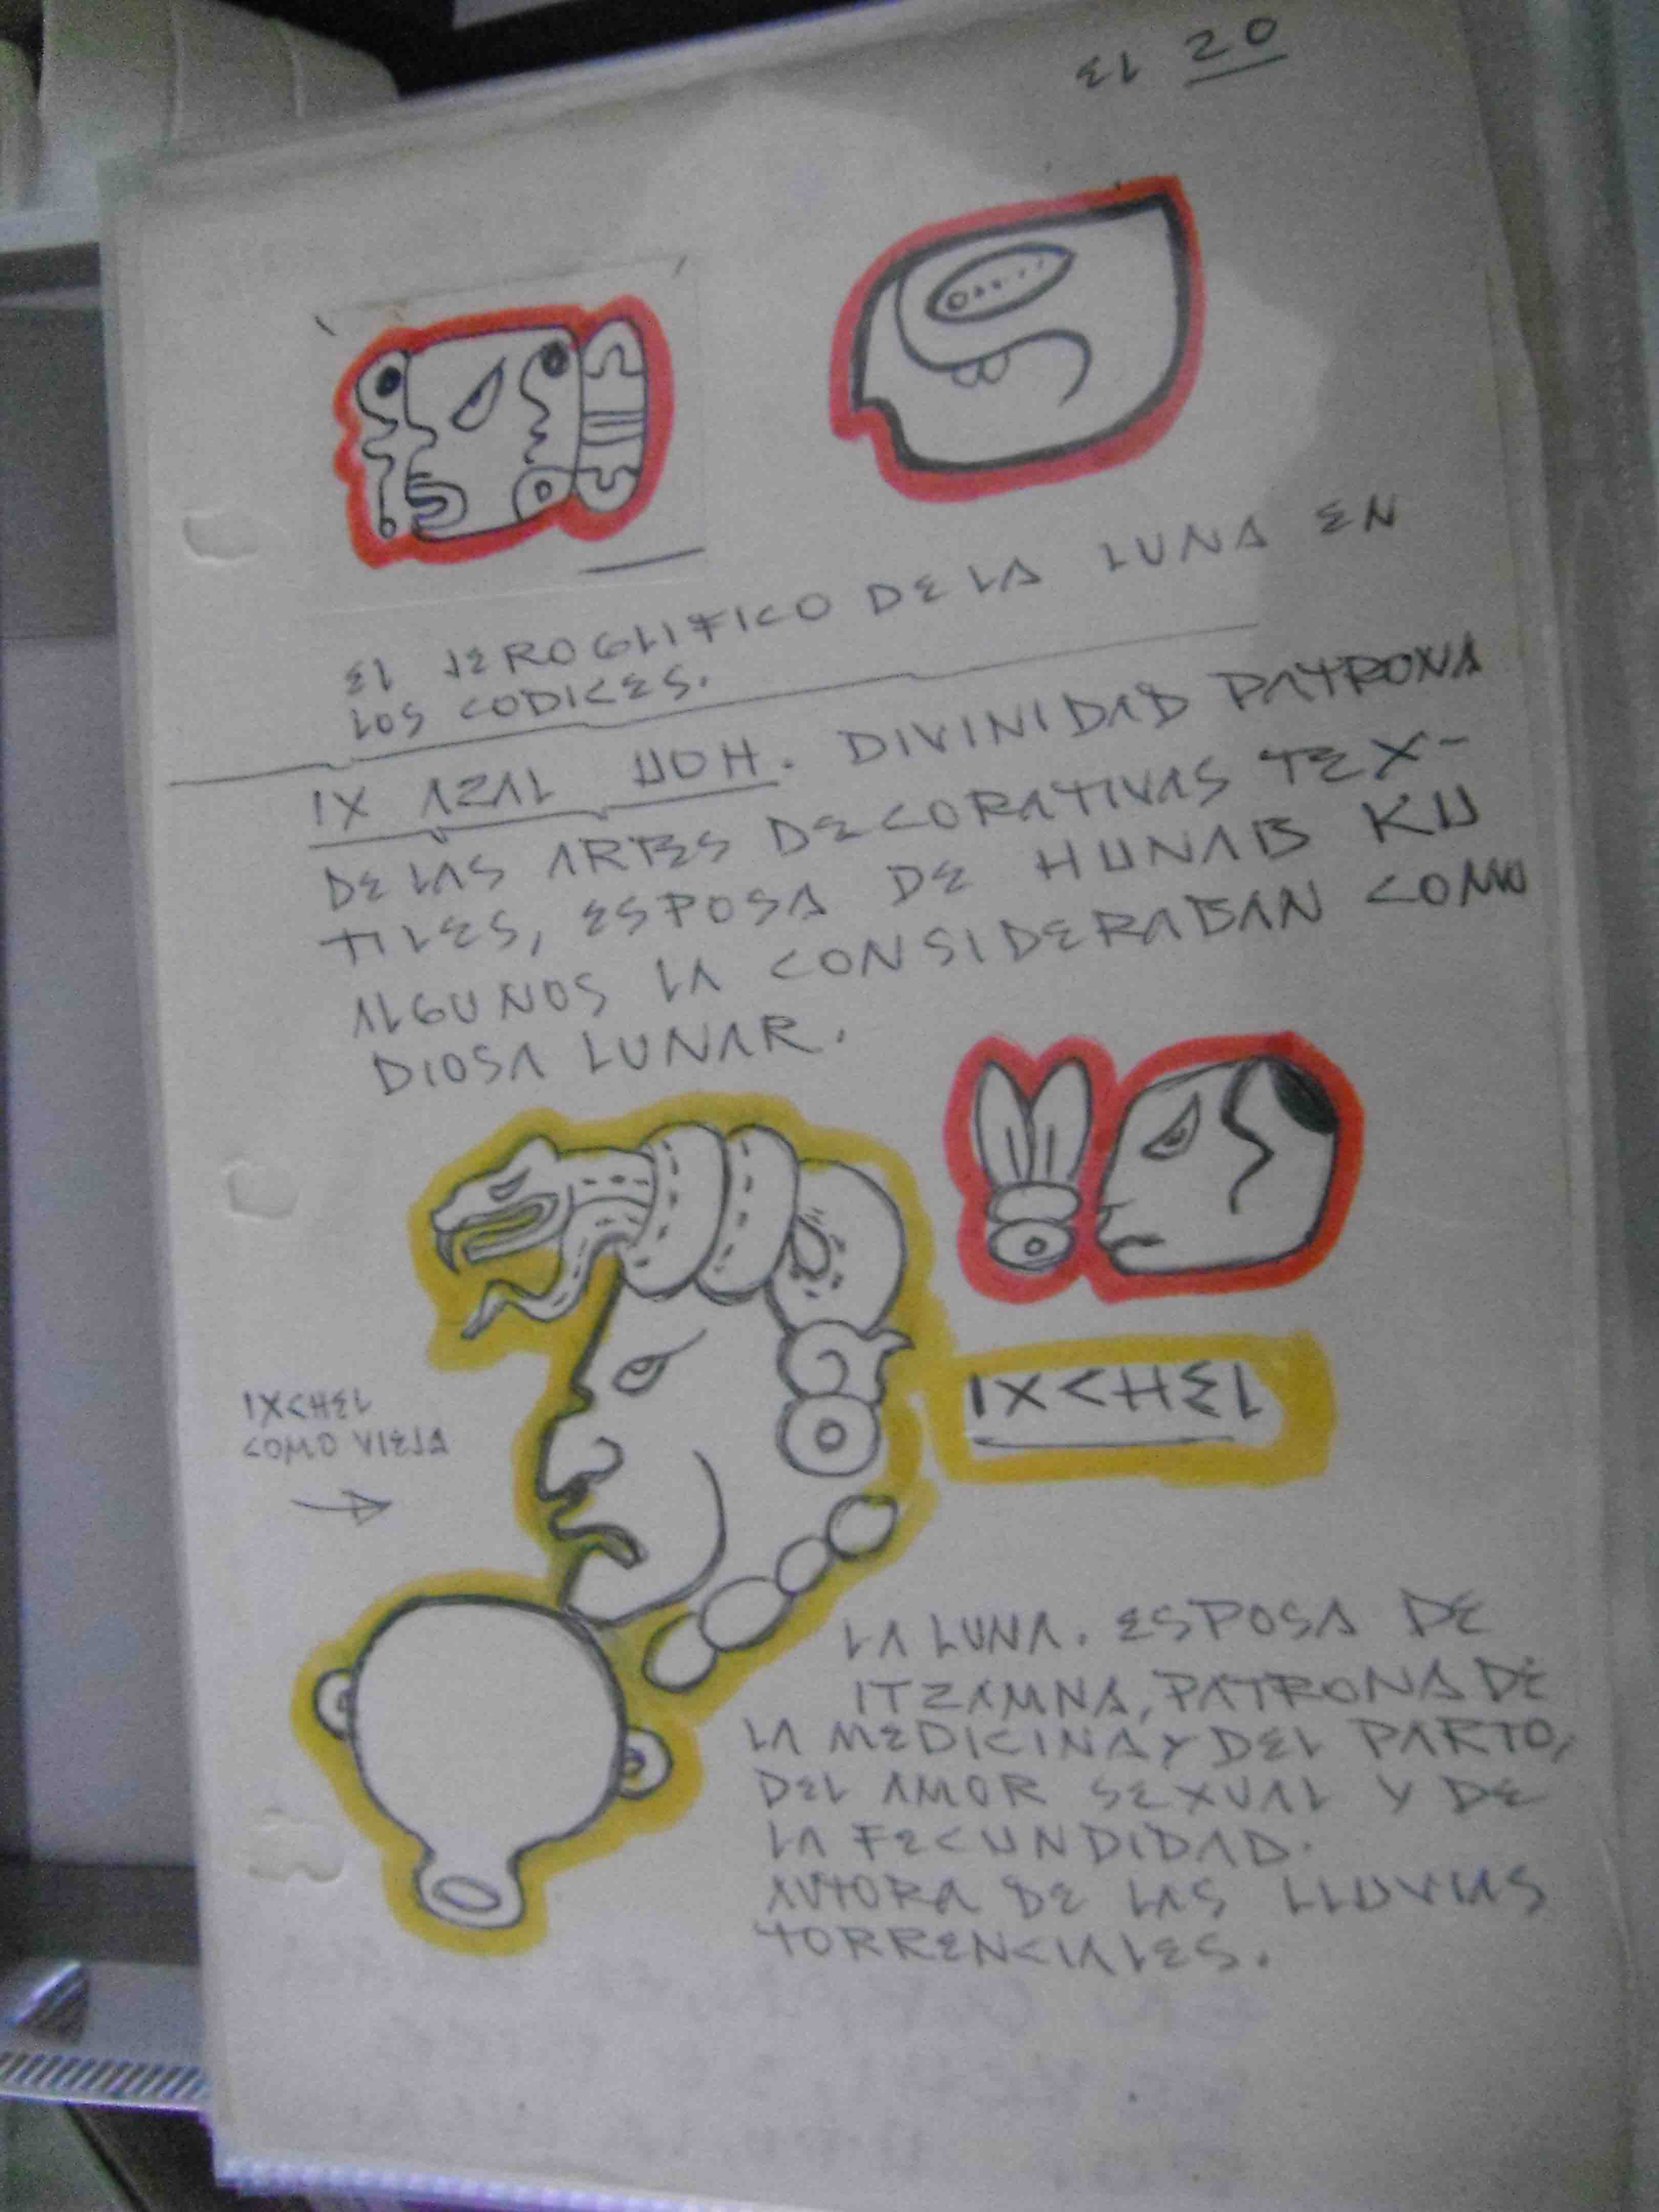 EL 20
EL JEROGLIFICO DE LA LUNA EN
LOS CODICES.
IX AZAL UOH. DIVINIDAD PATRONA
DE LAS ARTES DECORATIVAS TEX-
TILES, ESPOSA DE HUNAB KU
ALGUNOS LA CONSIDERABAN COMO
DIOSA LUNAR.
IXCHEL
IXCHEL
COMO VIEJA
LA LUNA. ESPOSA DE
ITZAMNA, PATRONA DE
LA MEDICINA Y DEL PARTO,
DEL AMOR SEXUAL Y DE
LA FECUNDIDAD.
AUTORA DE LAS LLUVIAS
TORRENCIALES.